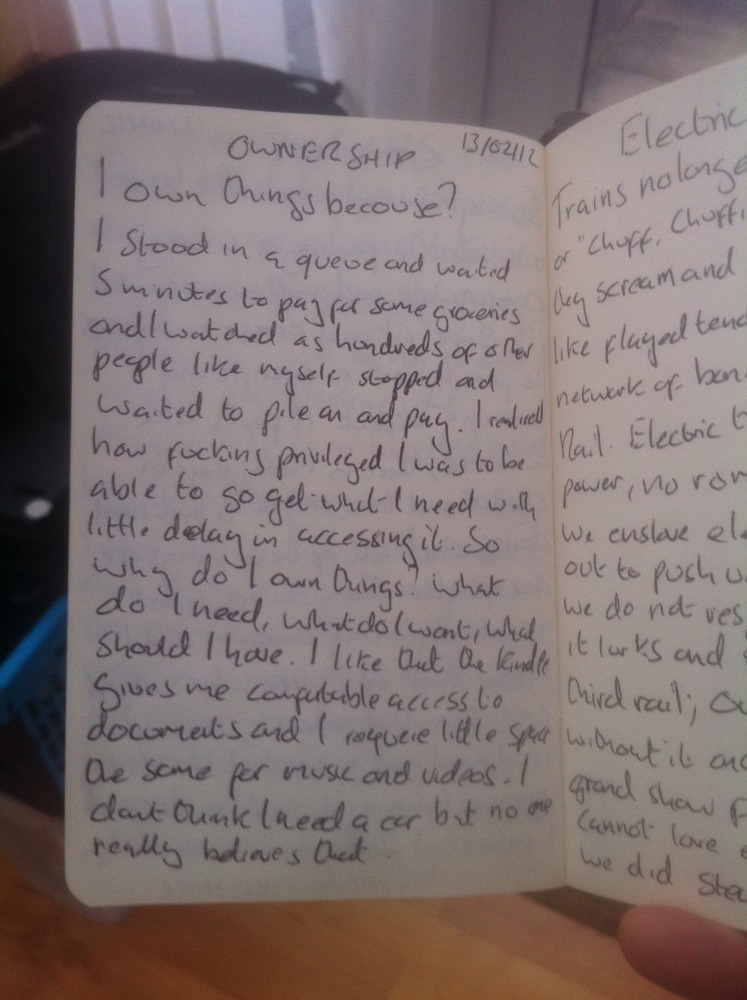 OWNERSHIP 13/02/12
I own things because?
I stood in a queue and waited
5 minutes to pay for some groceries
and I watched as hundreds of other
people like myself stopped and
waited to pile on and pay. I realised
how fucking privileged I was to be
able to go get what I need with
little delay in accessing it. So
why do I own things? What
do I need, what do I want, what
should I have. I like that the kindle
gives me comfortable access to
documents and I requere little space
the same for music and videos. I
dont think I need a car but no one
really believes that.
Electric
Trains no longe
or "Chuff, Chuff
they scream and
like flayed tend
network of
Rail. Electric t
power, no rom
We enslave ele
out to push u
we do not res
it lurks and
third rail; ou
without it and
grand show f
Cannot love e
we did stea